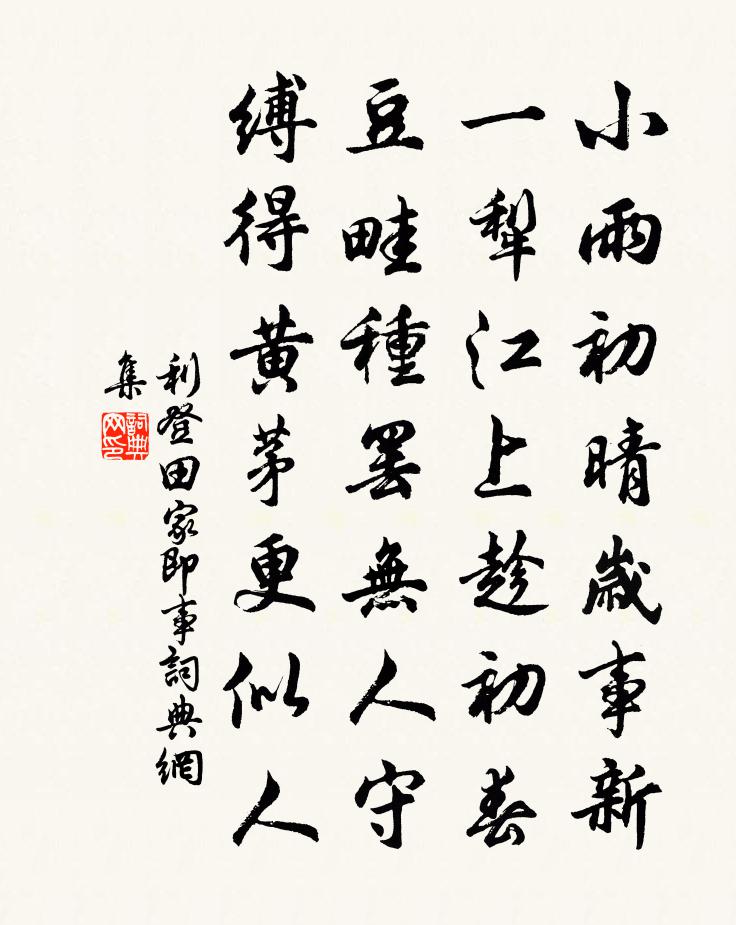 小雨初晴歲事新
一犁江上趁初春
豆畦種罷無人守
縛得黃茅更似人
利登田家即事詞典網
集
詞典
网印